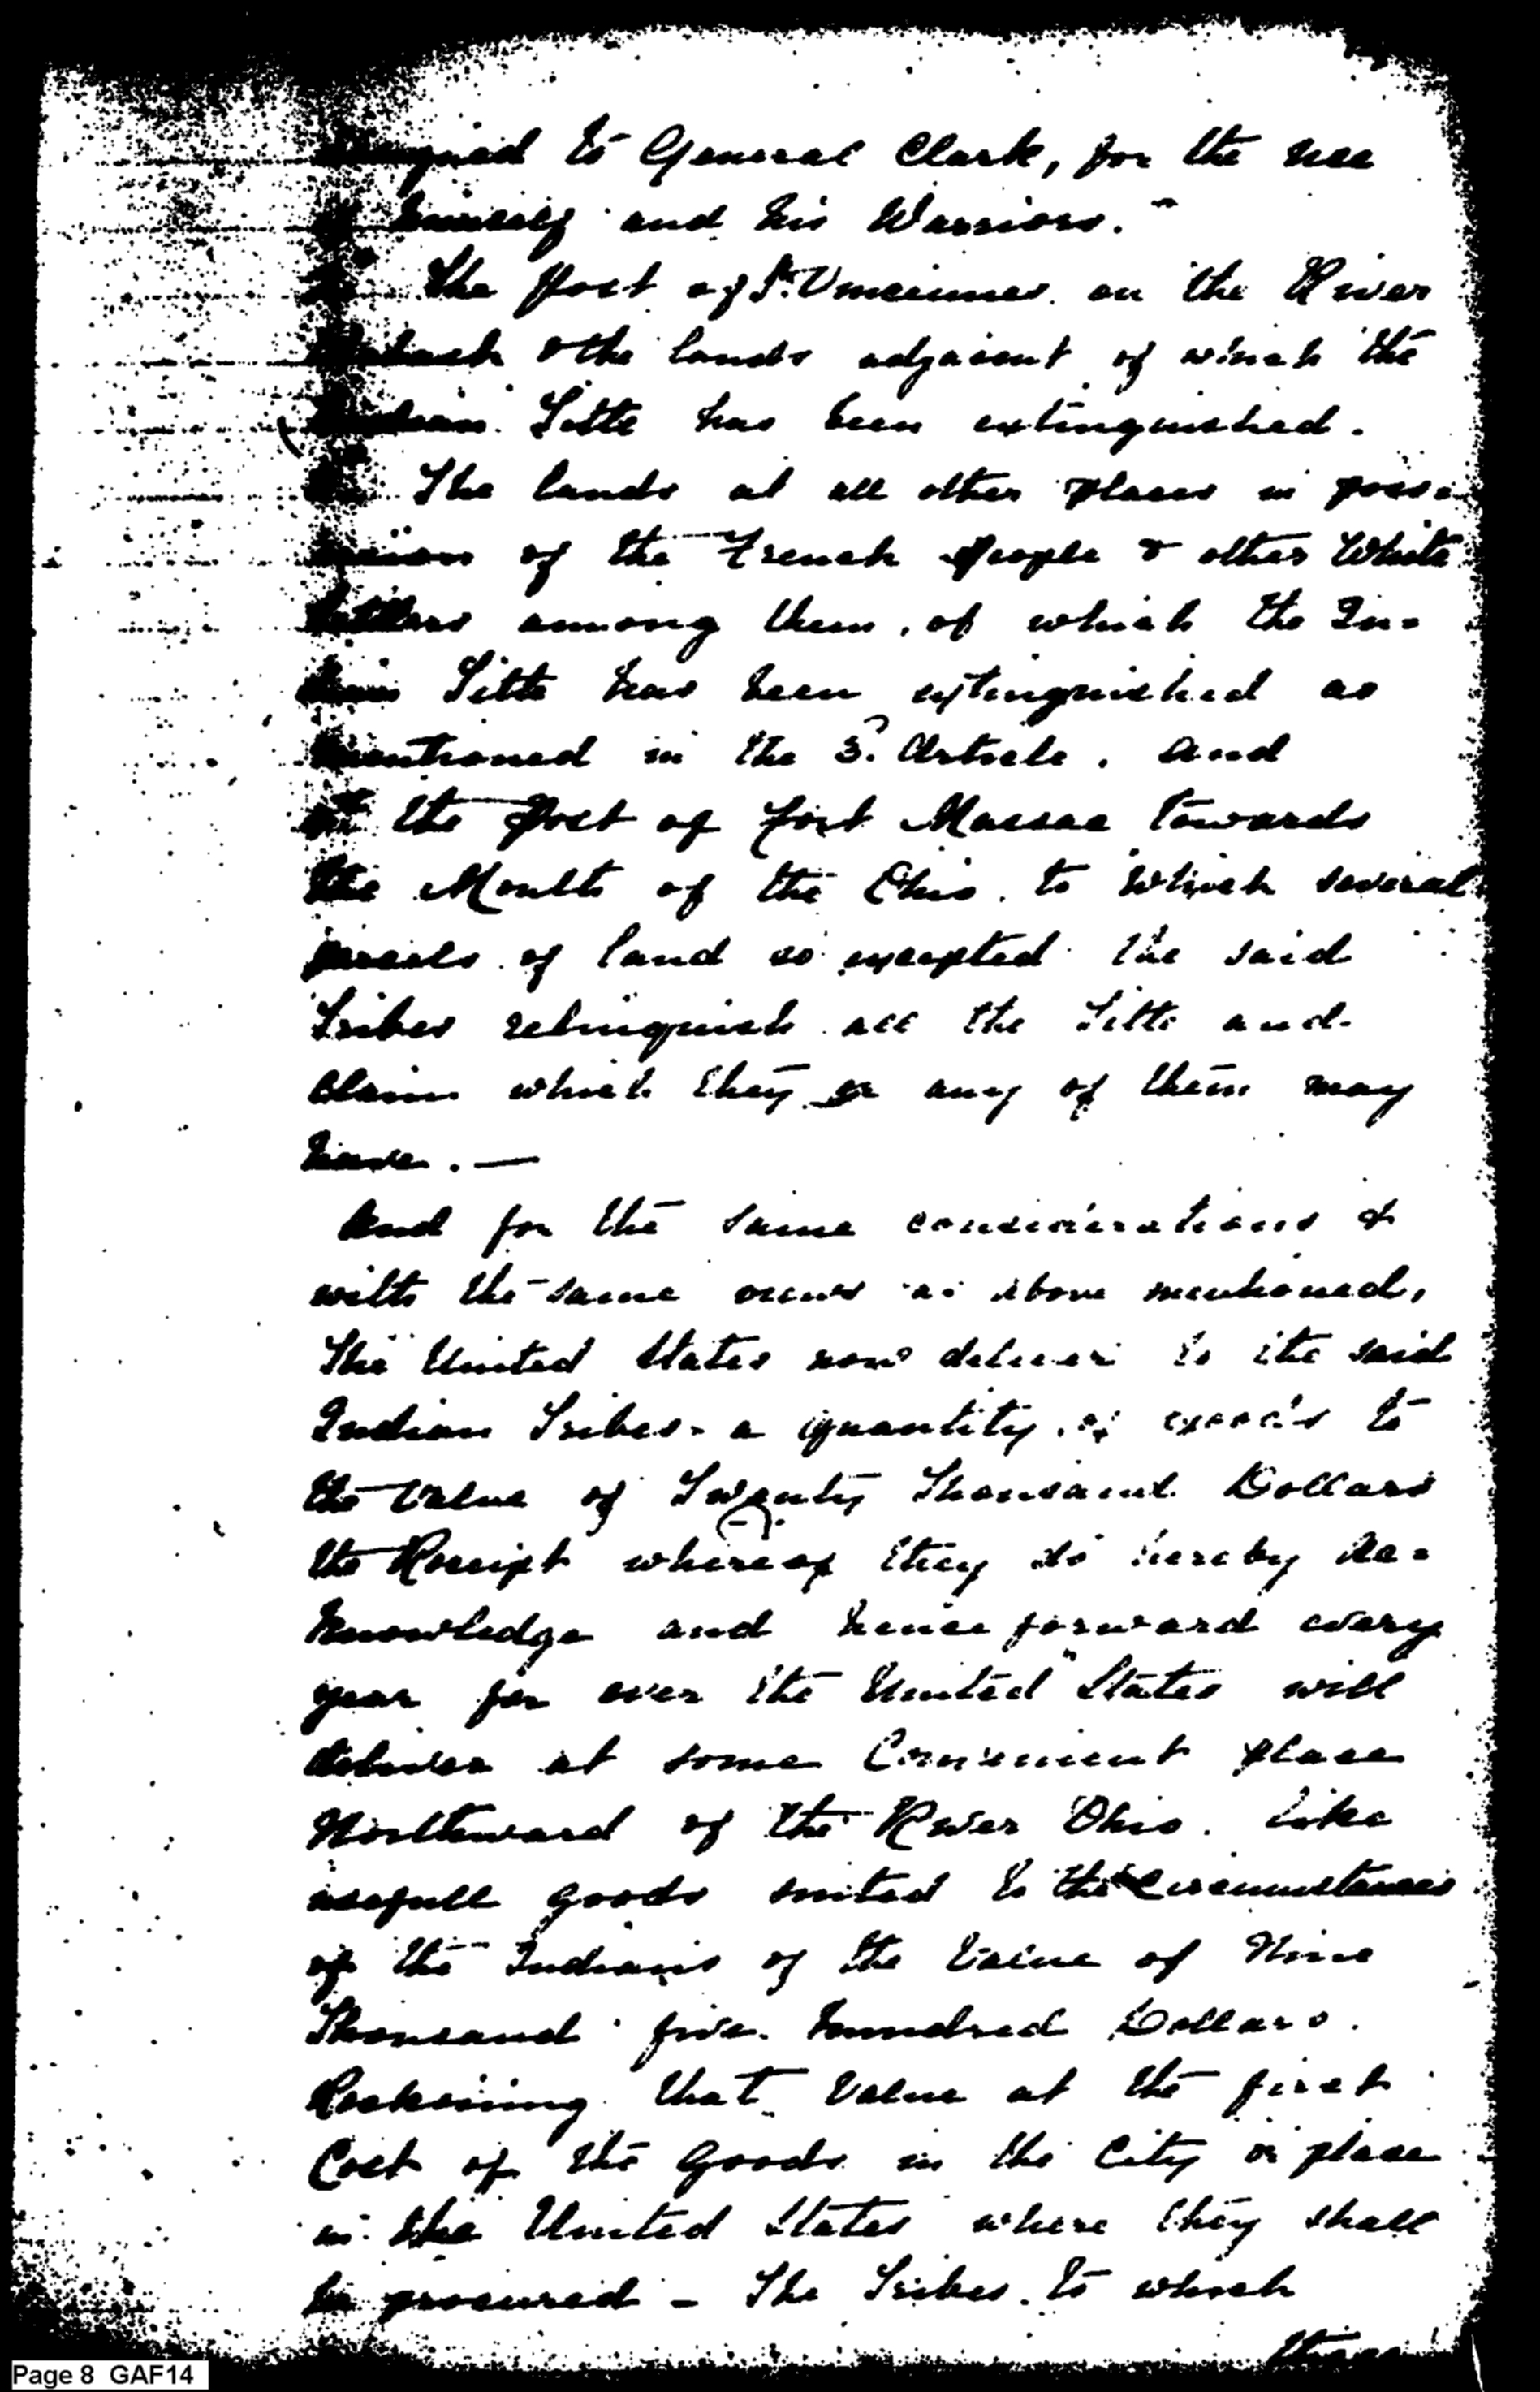 to General Clark, for the use
himself and his Warriors.
The Post of St. Vincennes on the River
& the lands adjacent of which the
Indian Title has been extinguished.
The lands at all other places in poss=
of the French people & other White
Settlers among them, of which the In=
Title has been extinguished as
mentioned in the 3d. Article. And
the Post of Fort Massac towards
the Mouth of the Ohio. to Which several
parcels of land so excepted the said
Tribes relinquish all the Title and
Claim which they or any of them may
have. —
And for the same considerations &
with the same views as above mentioned,
The United States now deliver to the said
Indian Tribes a quantity of goods to
the Value of Twenty Thousand Dollars
the Receipt whereof they do hereby Ac=
knowledge and hence forward every
year for ever the United States will
deliver at some Convenient place
Northward of the River Ohio. like
usefull goods suited to the Circumstances
of the Indians of the Value of Nine
Thousand five hundred Dollars.
Reckoning that Value at the first
Cost of the Goods in the City or place
in the United States where they shall
be procured – The Tribes to which
Page 8 GAF14